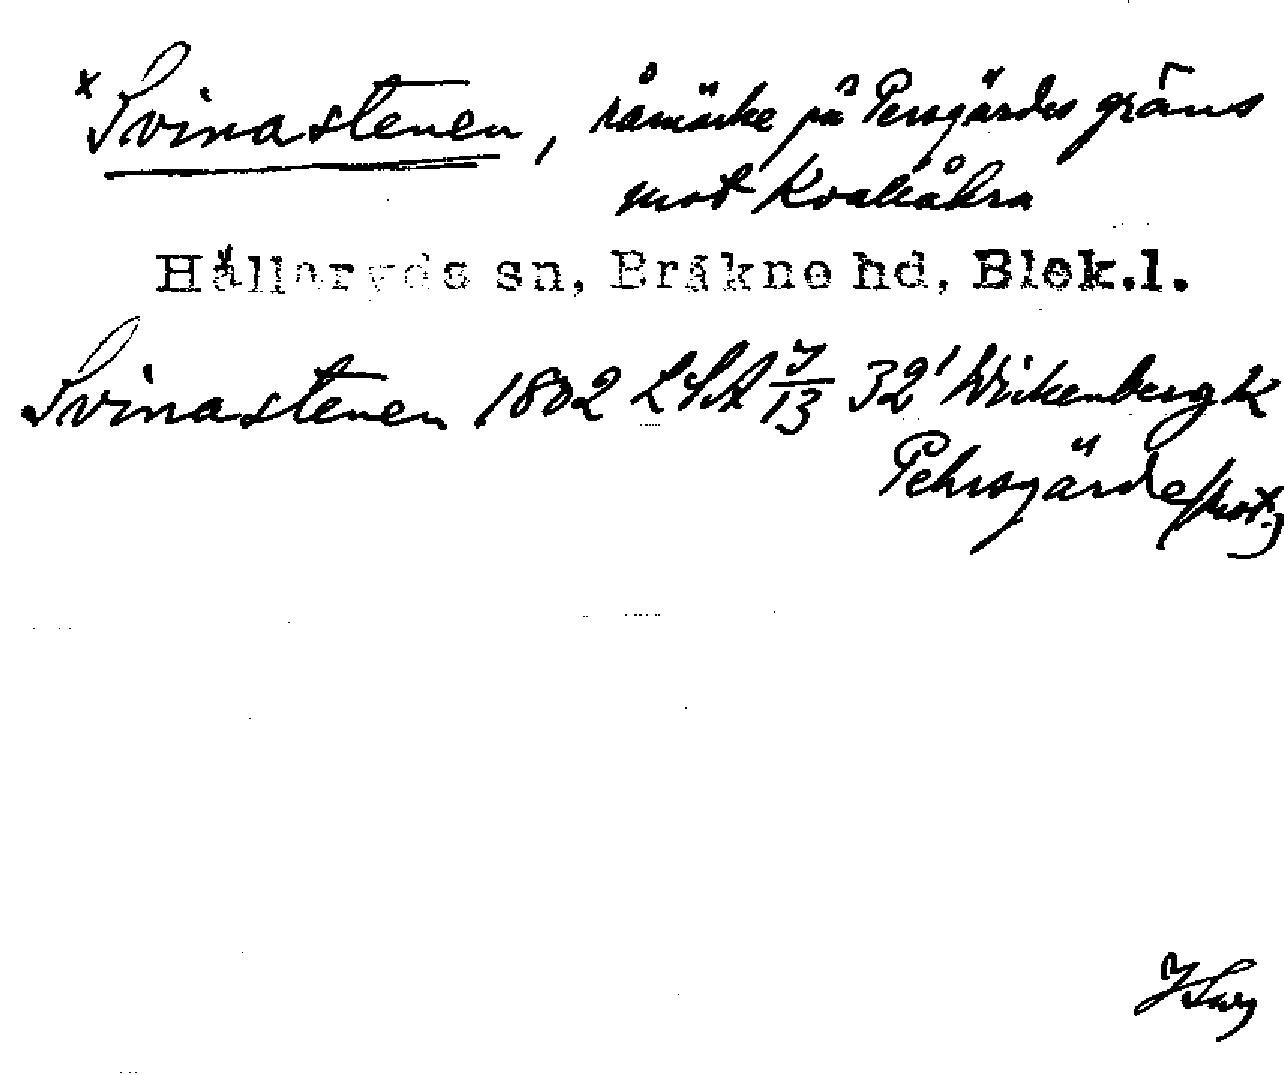 x Svinastenen, råmärke på Persgärdes gräns
mot Kvalsåkra
Hällaryds sn, Bräkne hd, Blek.l.
Svinastenen 1802 LSA 7/13 32' Wickenberg k
Pehrsgärde/not.